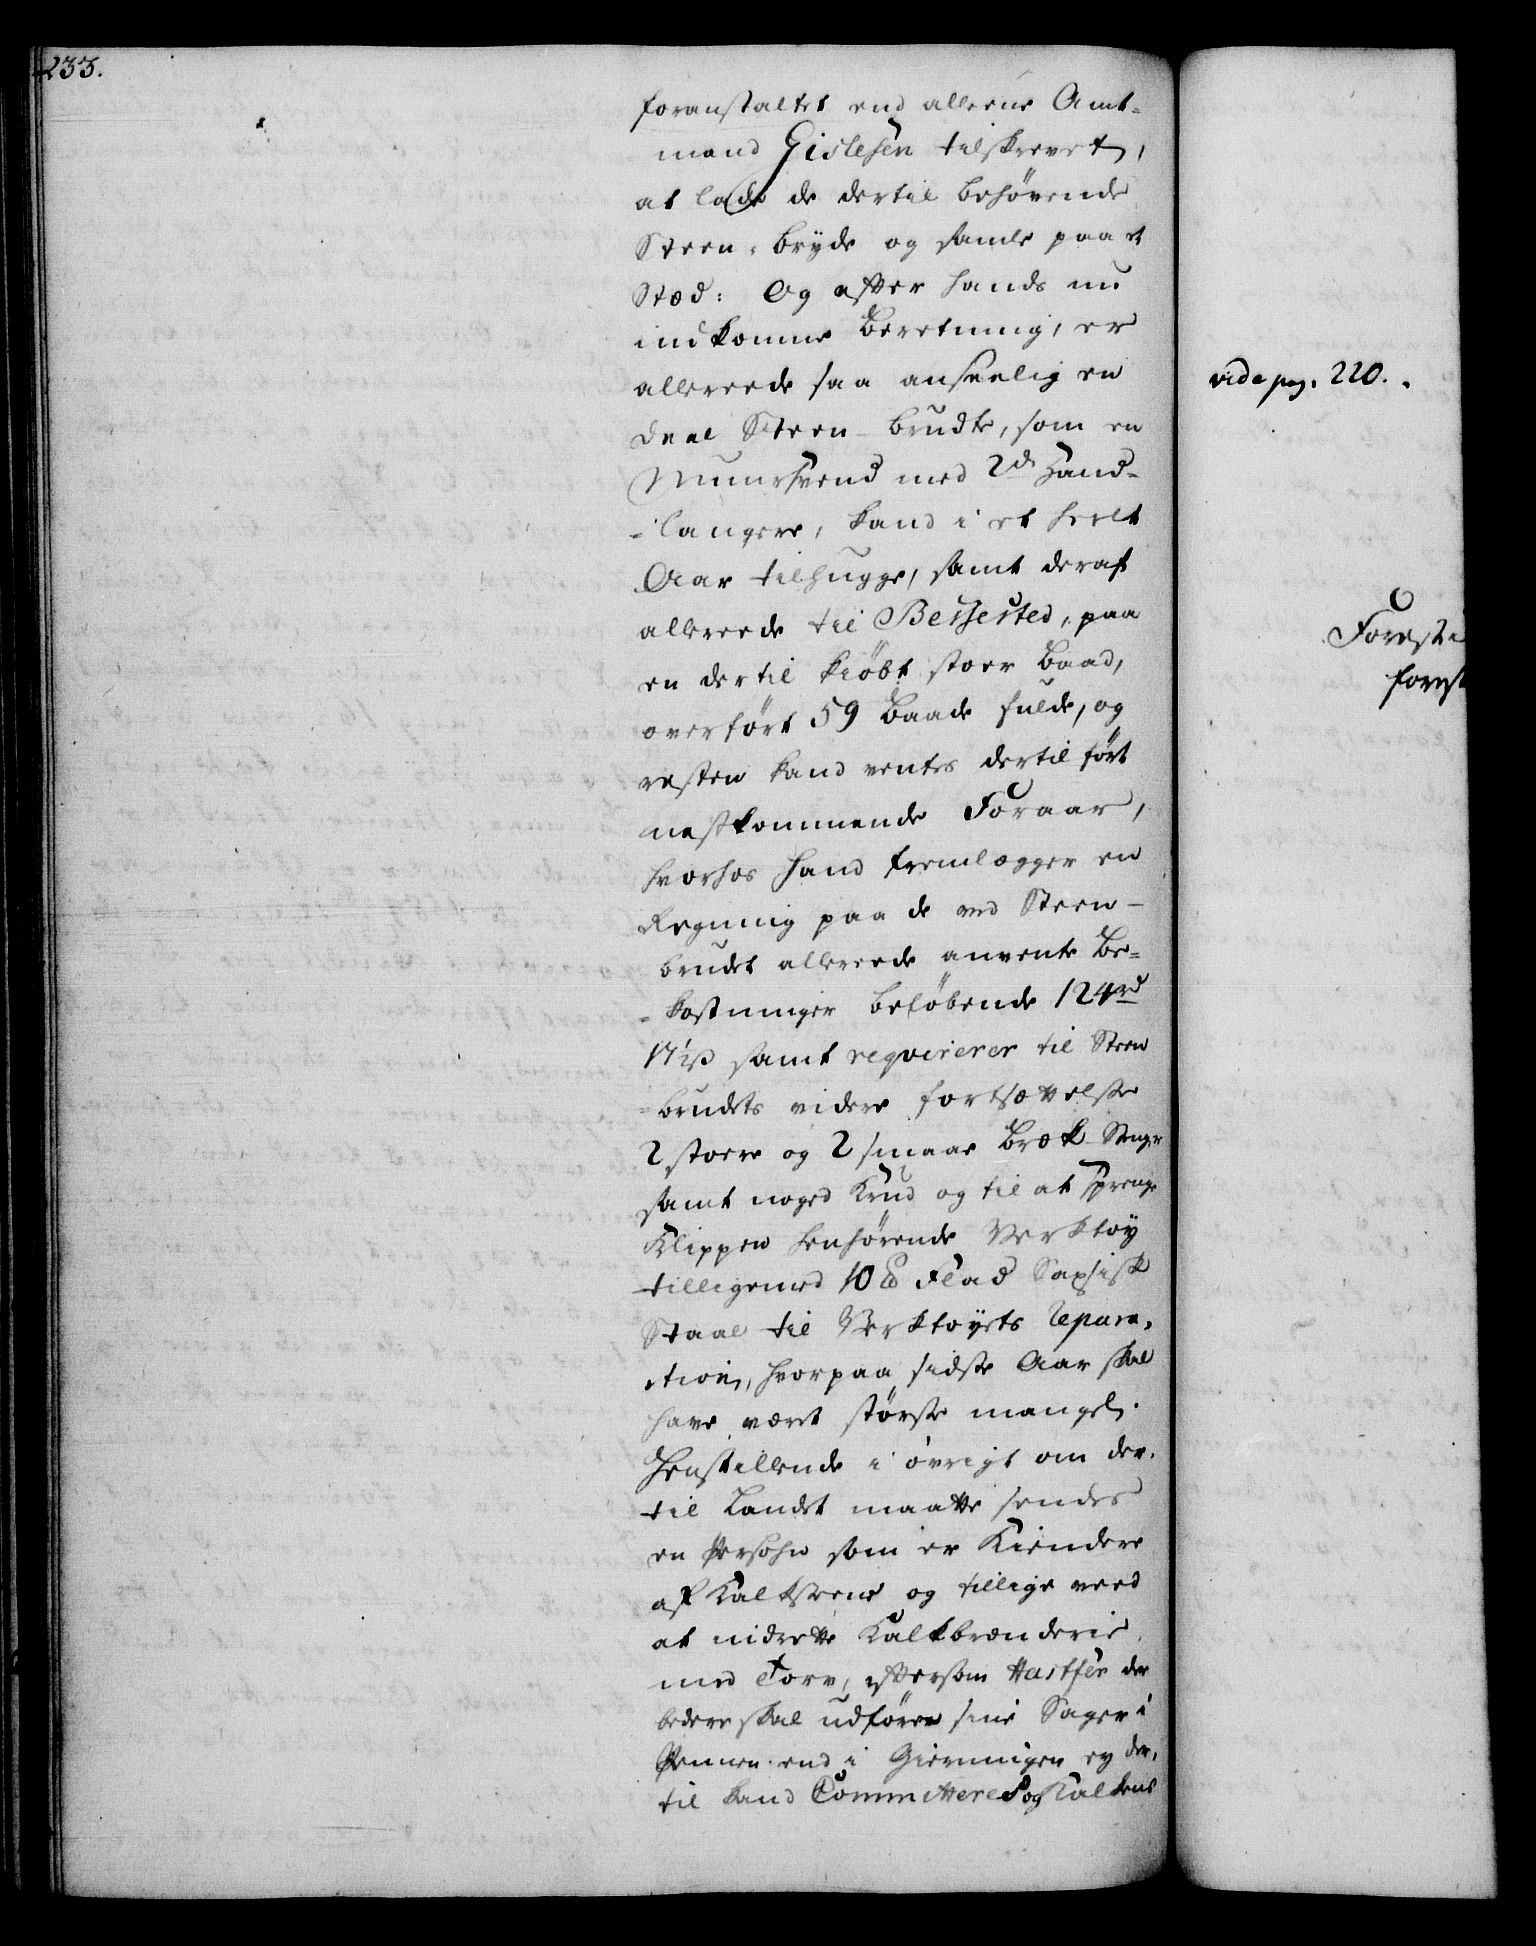 233.
foranstaltet end alleene Amt-
mand Gislesen tilskrevet,
at lade de dertil behövende
Steen, bryde og samle paa et
Stæd: Og efter hands nu
indkomne Beretning, er
allereede saa anseelig en
deel Steen brudte, som en
Muursvend med 2de Hand-
-langere, kand i et heelt
Aar tilhugge, samt deraf
allereede til Bessested, paa
en dertil kiöbt stoer Baad,
overfört 59 Baade fulde, og
resten kand ventes dertil fört
nestkommende Foraar,
hvorhos hand fremlægger en
Regning paa de ved Steen-
brudet allereede anvente Be-
-kostninger belöbende 124 rd
17 ß samt reqvirerer til Steen
-brudets videre fortsættelse
2 stoere og 2 smaae Bræk Stenger
samt noged Krud og til at sprenge
Klippen henhörende Verktøy
tilligemed 10 ℔ Flad Saxisk
Staal til Verktøyets Repara-
-tion, hvorpaa sidste Aar skal
have været störste mangel.
Henstillende i övrigt om der
til Landet maatte sendes
en Persohn som er Kiendere
af Kalksteene og tillige veed
at indrette Kalkbrænderie
med Torv, eftersom Hastfer der
bedere skal udföre sine Sager i
Pennen end i Gierningen ey der-
til kand Committeres og Kalkens
vide pag. 220.
Foresti
forest